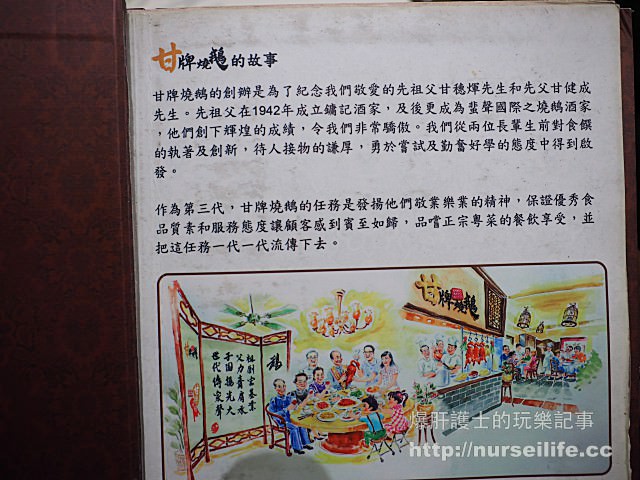 甘牌燒鵝的故事
甘牌燒鵝的創辦是為了紀念我們敬愛的先祖父甘穗煇先生和先父甘健成
先生。先祖父在1942年成立鏞記酒家，及後更成為蜚聲國際之燒鵝酒家
，他們創下輝煌的成績，令我們非常驕傲。我們從兩位長輩生前對食饌
的執著及創新，待人接物的謙厚，勇於嘗試及勤奮好學的態度中得到啟
發。
作為第三代，甘牌燒鵝的任務是發揚他們敬業樂業的精神，保證優秀食
品質素和服務態度讓顧客感到賓至如歸，品嚐正宗粵菜的餐飲享受，並
把這任務一代一代流傳下去。
甘牌燒鵝
祖創宏基業
父力耆肩承
子固揚光大
世代傳家聲
爆肝護士的玩樂記事
http://nurseilife.cc